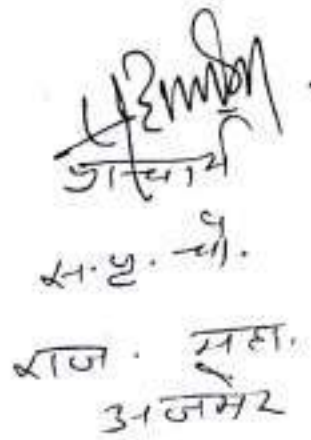 प्राचार्य
स. पृ. चौ.
राज. महा.
अजमेर